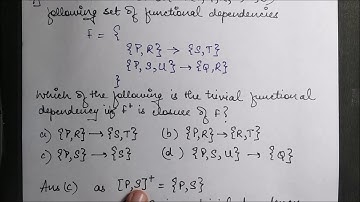 following set of functional dependencies
F = {
{P,R} → {S,T}
{P,S,U} → {Q,R}
}
Which of the following is the trivial functional
dependency in F⁺ is closure of F?
a) {P,R} → {S,T} (b) {P,R} → {R,T}
c) {P,S} → {S} (d) {P,S,U} → {Q}
Ans (c) as [P,S]⁺ = {P,S}